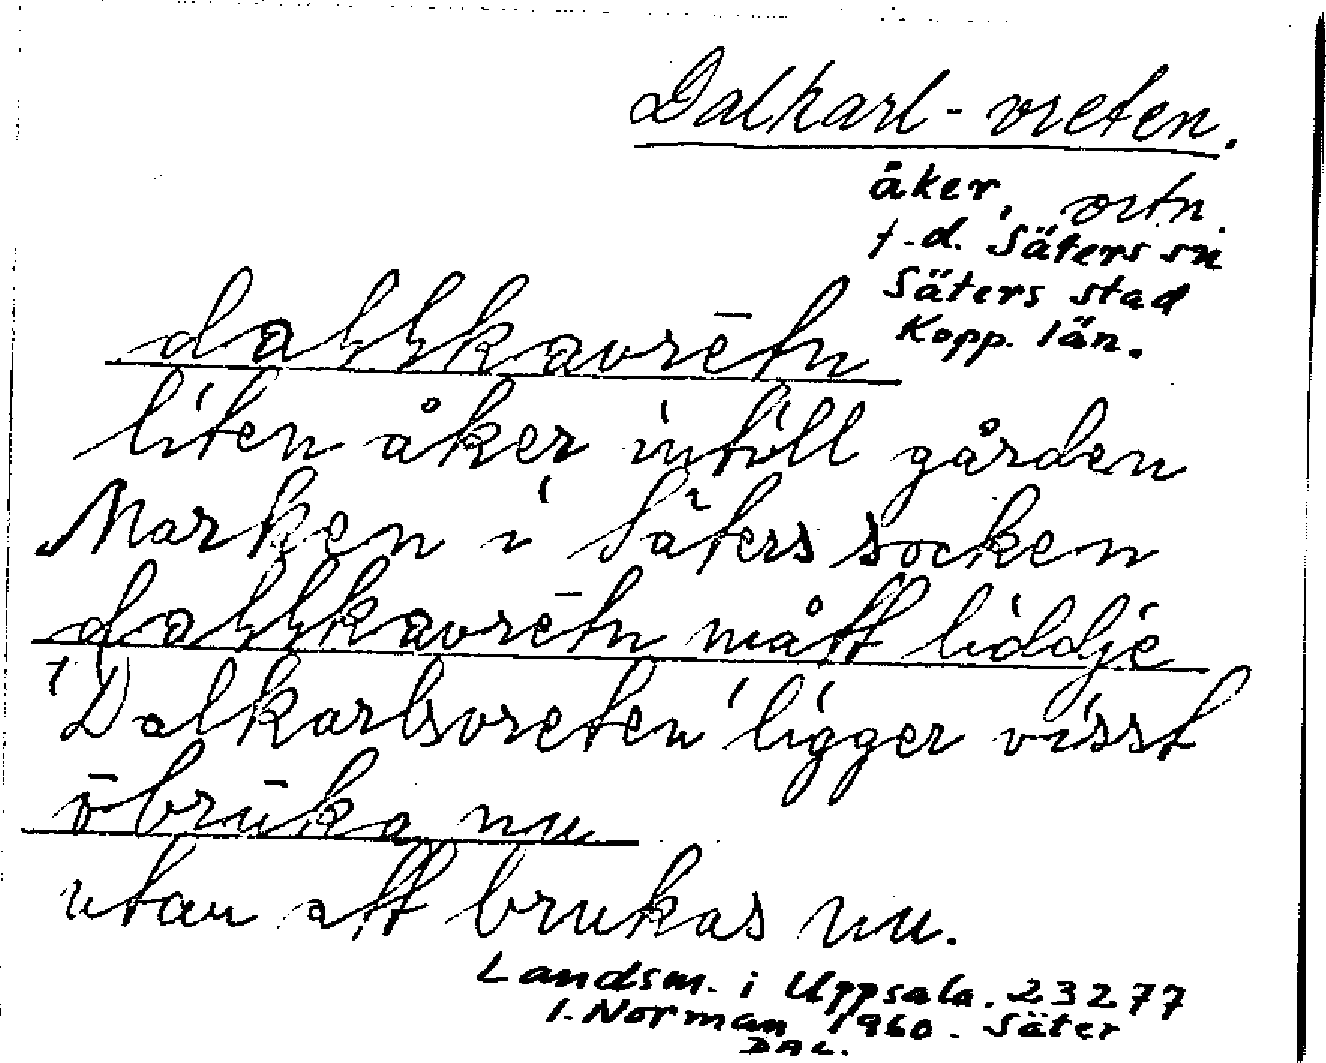 Dalkarl-vreten.
åker, ortn.
f.d. Säters sn
Säters stad
Kopp. län.
daļļkavrētn
liten åker intill gården
Marken i Säters socken
daļļkavrētn mått liddje
"Dalkarlsvreten" ligger visst
ōbrūka nu
utan att brukas nu.
Landsm. i Uppsala. 23277
I. Norman 1960. Säter
DAL.